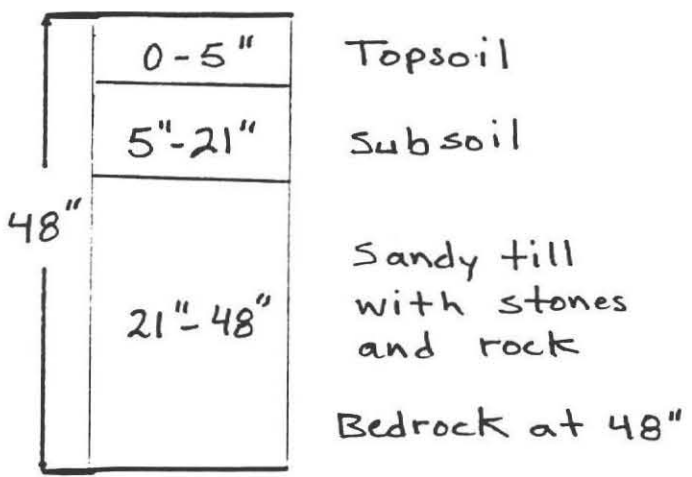 0-5" Topsoil
5"-21" Subsoil
48"
21"-48" Sandy till
with stones
and rock
Bedrock at 48"